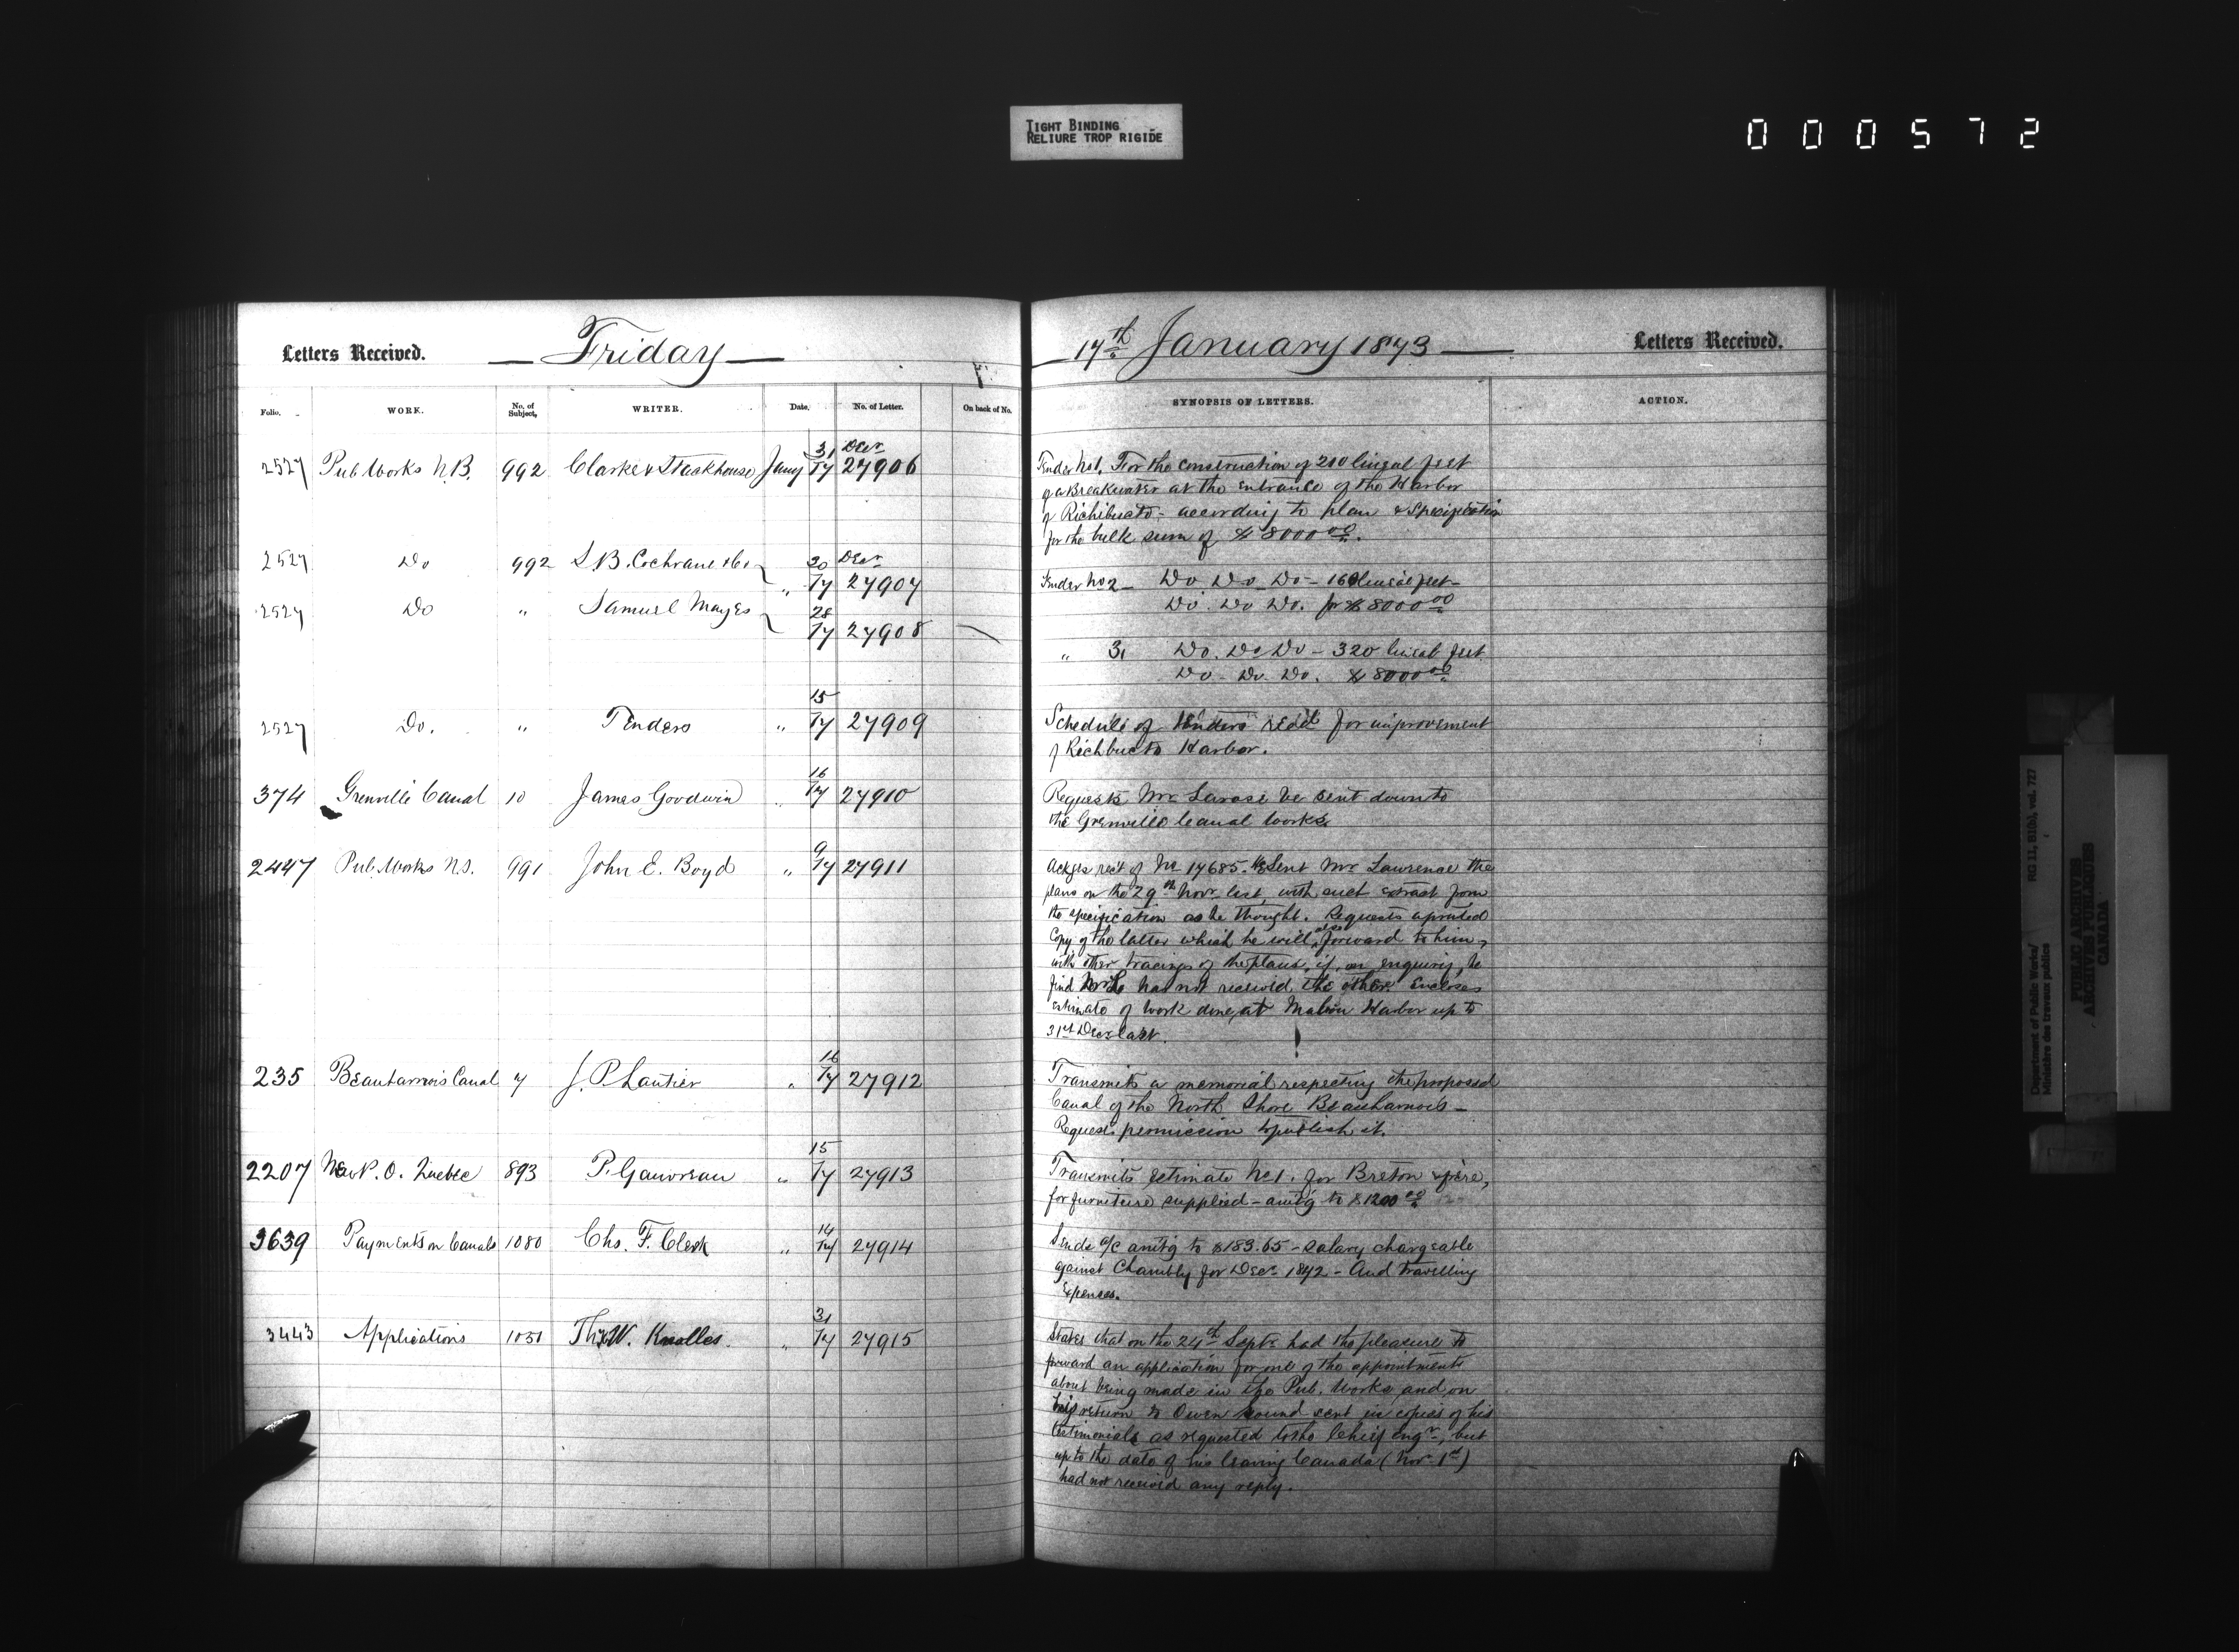 TIGHT BINDING
RELIURE TROP RIGIDE
000572
Letters Received. — Friday —
17th January 1873 — Letters Received.
Folio. WORK. No. of Subject, WRITER. Date. No. of Letter. On back of No.
SYNOPSIS OF LETTERS. ACTION.
31 Decr
2527 Pub Works N.B. 992 Clarke & Stackhouse Jany 17 27906
Tender No 1, For the construction of 210 lineal feet
of a Breakwater at the entrance of the Harbor
of Richibucto - according to plan & Specification
for the bulk sum of $8000.00.
20 Decr
2527 Do 992 S.B. Cochrane &Co
" 17 27907
Tender No 2 - Do Do Do - 160 lineal feet -
Do. Do Do. for $8000.00
2527 Do " Samuel Mayes 28
17 27908
" 3, Do. Do Do - 320 lineal feet
Do - Do. Do. $8000.00
15
2527 Do. " Tenders " 17 27909
Schedule of tenders recd for improvement
of Richbucto Harbor.
16
374 Grenville Canal 10 James Goodwin " 17 27910
Requests Mr Larose be sent down to
the Grenville Canal Works.
9
2447 Pub. Works N.S. 991 John E. Boyd " 17 27911
Ackges rect of No 17685. He Sent Mr Lawrence the
plans on the 29th Novr last, with such extract from
the specification as he thought. Requests a printed
Copy of the latter which he will also forward to him,
with other tracings of the plans, if, on enquiry, he
find Mr L has not received the other. Encloses
estimate of work done, at Mabou Harbor up to
31st Decr last.
16
235 Beauharnois Canal 7 J. P. Lantier " 17 27912
Transmits a memorial respecting the proposed
Canal of the North Shore Beauharnois -
Requests permission to publish it.
15
2207 New P. O. Quebec 893 P. Gauvreau " 17 27913
Transmits Estimate No 1. for Breton & frère,
for furniture supplied - amtg to $1200.00
14
3639 Payments on Canals 1080 Chs. F. Clerk " 17 27914
Sends a/c amtg to $183.65 - salary chargeable
against Chambly for Decr 1872 - And travelling
Expenses.
31
3443 Applications 1031 W. Knolles. " 17 27915
States that on the 24th Septr had the pleasure to
forward an application for one of the appointments
about being made in the Pub. Works, and, on
his return to Owen Sound sent in copies of his
testimonials as requested to the Chief Engr, but
up to the date of his leaving Canada (Nov 1st)
had not received any reply.
Department of Public Works/
Ministère des travaux publics
RG 11, B1(b), vol. 727
PUBLIC ARCHIVES
ARCHIVES PUBLIQUES
CANADA